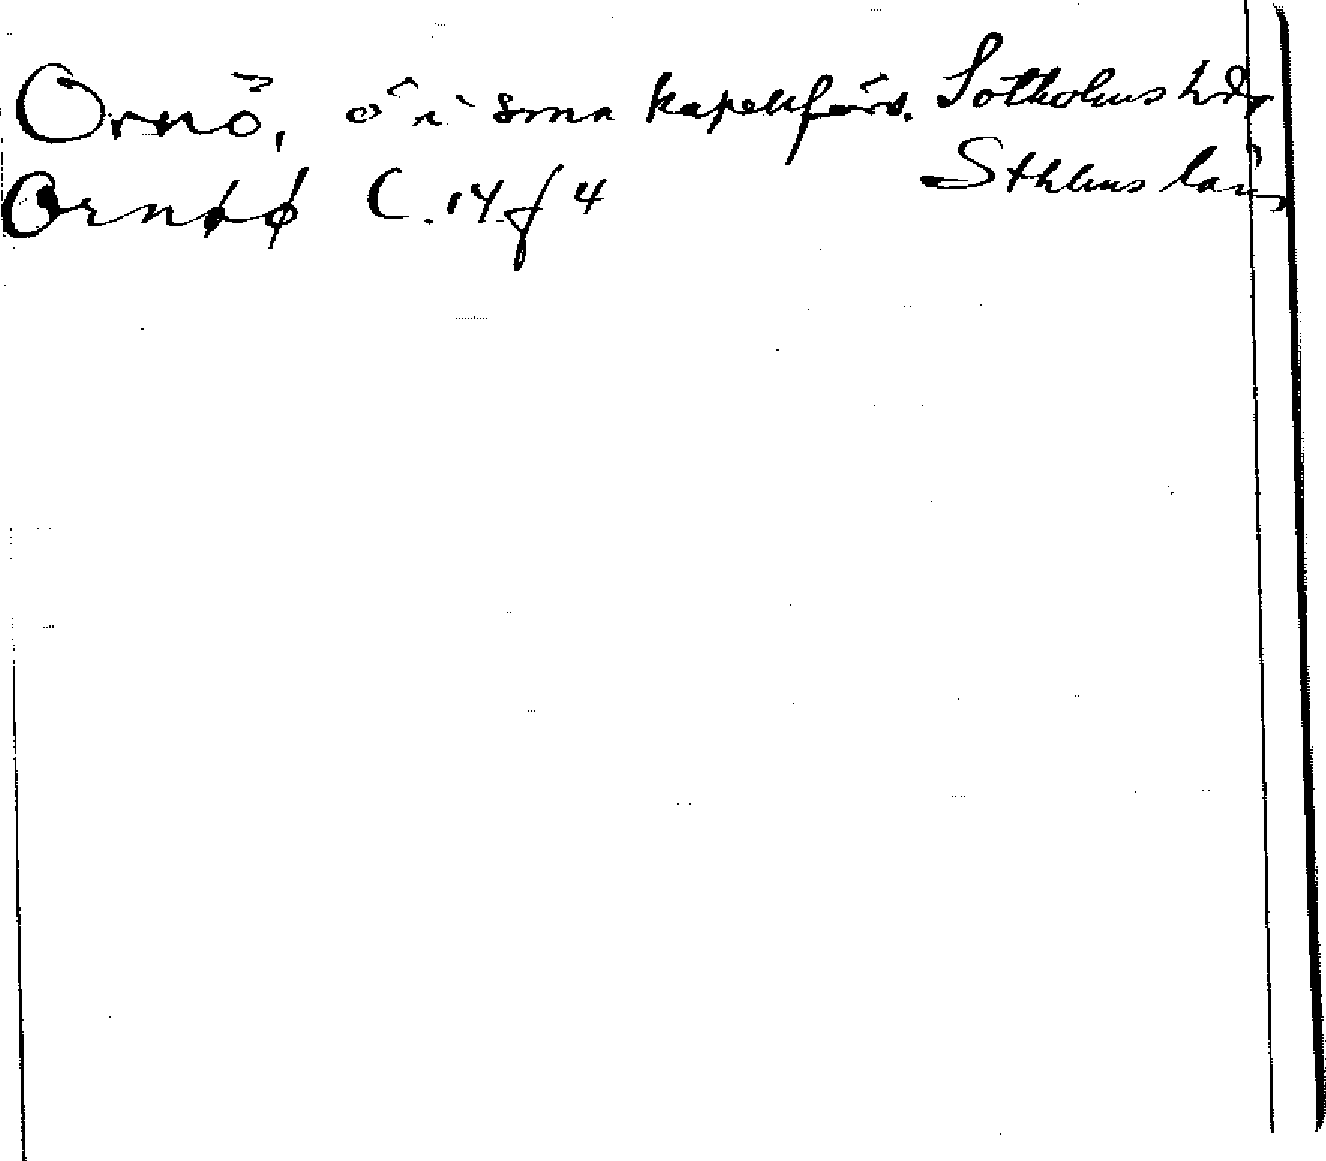 Ornö, ö i sma kapellförs. Sotholms hd
Ornøø C. 14 f 4 Sthlms län